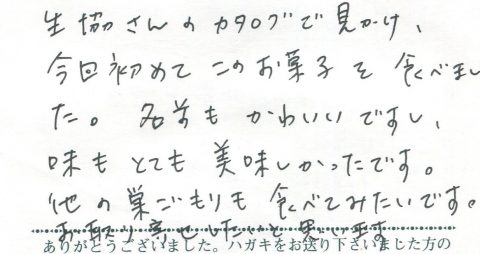 生協さんのカタログで見かけ、
今回初めてこのお菓子を食べまし
た。名前もかわいいですし、
味もとても美味しかったです。
他の巣ごもりも食べてみたいです。
お取り寄せしたいと思います
ありがとうございました。ハガキをお送り下さいました方の